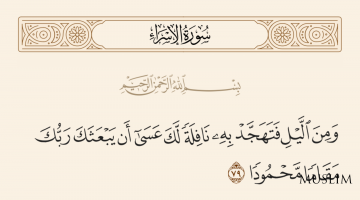 سُورَةُ الإِسْرَاءِ
بِسْمِ اللَّهِ الرَّحْمَٰنِ الرَّحِيمِ
وَمِنَ ٱلَّيْلِ فَتَهَجَّدْ بِهِۦ نَافِلَةً لَّكَ عَسَىٰٓ أَن يَبْعَثَكَ رَبُّكَ
مَقَامًا مَّحْمُودًا ٧٩
MUSLIM